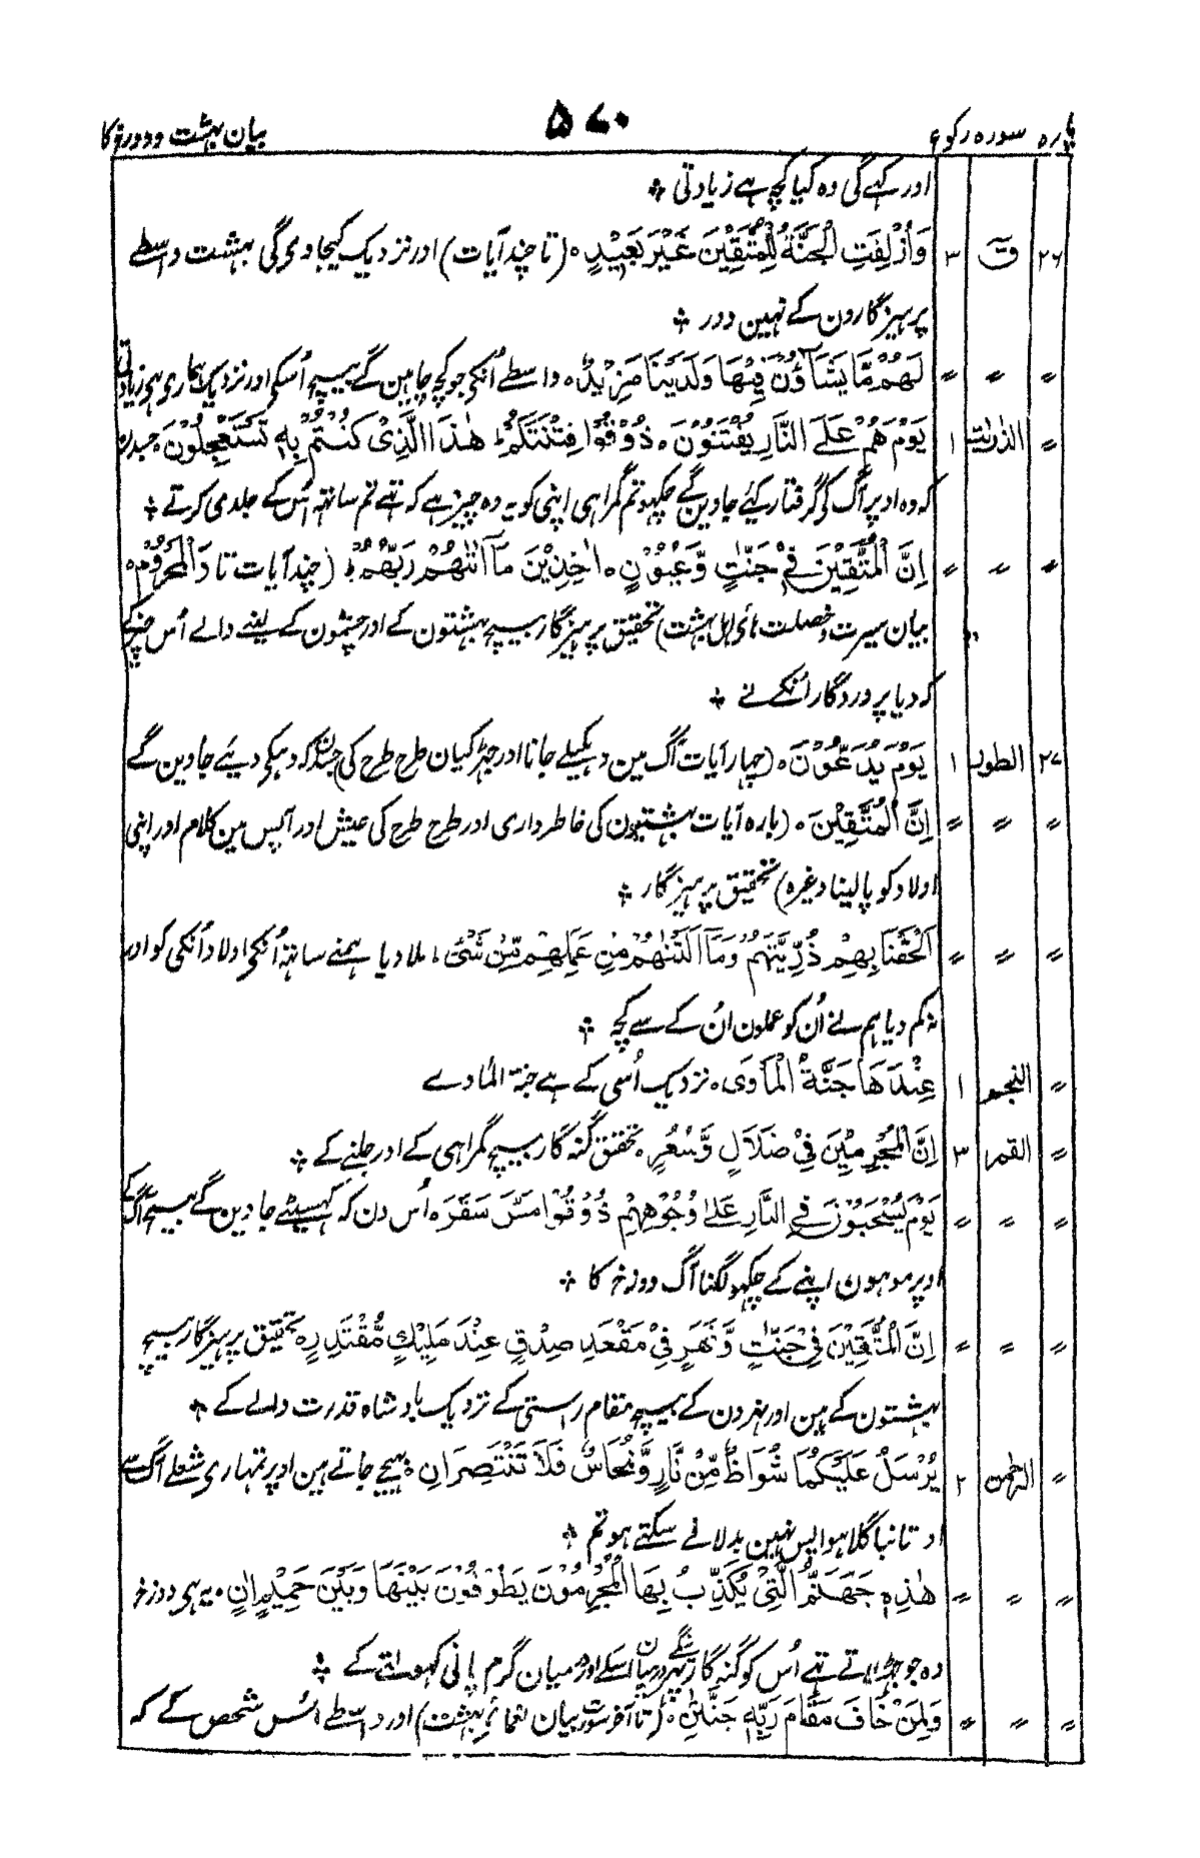 پارہ سورہ رکوع ۵۷۰ بیان بہشت و دوزخ کا
اور کہے گی وہ کیا کچہ ہے زیادتی ؞
۲۶ قٓ ۳ وَاُزْلِفَتِ الْجَنَّةُ لِلْمُتَّقِيْنَ غَيْرَ بَعِيْدٍ ۰ (تا چند آیات) اور نزدیک کیجاوی گی بہشت واسطے
پرہیزگارون کے نہین دور ؞
〃 〃 〃 لَهُمْ مَّا يَشَآؤُنَ فِيْهَا وَلَدَيْنَا مَزِيْدٌ ۰ واسطے اُنکی جو کچہ چاہین گے بیچ اُسکی اور نزدیک ہماری ہی زیادتی
〃 الذریٰت ۱ يَوْمَ هُمْ عَلَى النَّارِ يُفْتَنُوْنَ ۰ ذُوْقُوْا فِتْنَتَكُمْ ؕ هٰذَا الَّذِيْ كُنْتُمْ بِهٖ تَسْتَعْجِلُوْنَ ۰ جسدن
کہ وہ اوپر آگ کی گرفتار کیئے جاوین گے چکہو تم گمراہی اپنی کو یہ وہ چیز ہے کہ تہے تم ساتہہ اُس کے جلدی کرتے ؞
〃 〃 〃 اِنَّ الْمُتَّقِيْنَ فِيْ جَنّٰتٍ وَّعُيُوْنٍ ۰ اٰخِذِيْنَ مَآ اٰتٰهُمْ رَبُّهُمْ ؕ (چند آیات تا وَالْمَحْرُوْمِ ۰
بیان سیرت و خصلت ہای اہل بہشت) تحقیق پرہیزگار بیچ بہشتون کے اور چشمون کے لینے والے اُس چیز کے
کہ دیا پروردگار اُنکے نے ؞
۲۷ الطور ۱ يَوْمَ يُدَعُّوْنَ ۰ (چہار آیات آگ مین دہکیلے جانا اور جہڑکیان طرح طرح کی) جسدن کہ دہکی دیئے جاوین گے
〃 〃 〃 اِنَّ الْمُتَّقِيْنَ ۰ (بارہ آیات بہشتیون کی خاطرداری اور طرح طرح کی عیش اور آپس مین کلام اور اپنی
اولاد کو پالینا وغیرہ) تحقیق پرہیزگار ؞
〃 〃 〃 اَلْحَقْنَا بِهِمْ ذُرِّيَّتَهُمْ وَمَآ اَلَتْنٰهُمْ مِّنْ عَمَلِهِمْ مِّنْ شَيْئٍ ۰ ملا دیا ہمنے ساتہہ اُنکی اولاد اُنکی کو اور
نہ کم دیا ہم نے اُن کو عملون اُن کے سے کچہ ؞
〃 النجم ۱ عِنْدَهَا جَنَّةُ الْمَاْوٰى ۰ نزدیک اُسی کے ہے جنۃ الماوے
〃 القمر ۳ اِنَّ الْمُجْرِمِيْنَ فِيْ ضَلَالٍ وَّسُعُرٍ ۰ تحقیق گنہ گار بیچ گمراہی کے اور جلنے کے ؞
〃 〃 〃 يَوْمَ يُسْحَبُوْنَ فِي النَّارِ عَلٰى وُجُوْهِهِمْ ذُوْقُوْا مَسَّ سَقَرَ ۰ اُس دن کہ گہسیٹے جاوین گے بیچ آگ کے
اوپر موہون اپنے کے چکہو لگنا آگ دوزخ کا ؞
〃 〃 〃 اِنَّ الْمُتَّقِيْنَ فِيْ جَنّٰتٍ وَّنَهَرٍ فِيْ مَقْعَدِ صِدْقٍ عِنْدَ مَلِيْكٍ مُّقْتَدِرٍ ۰ تحقیق پرہیزگار بیچ
بہشتون کے ہین اور نہرون کے بیچ مقام راستی کے نزدیک بادشاہ قدرت والے کے ؞
〃 الرحمٰن ۲ يُرْسَلُ عَلَيْكُمَا شُوَاظٌ مِّنْ نَّارٍ وَّنُحَاسٌ فَلَا تَنْتَصِرَانِ ۰ بہیجے جاتے ہین اوپر تمہاری شعلے آگ سے
اور تانبا گلا ہوا پس نہین بدلا لے سکتے ہو تم ؞
〃 〃 〃 هٰذِهٖ جَهَنَّمُ الَّتِيْ يُكَذِّبُ بِهَا الْمُجْرِمُوْنَ يَطُوْفُوْنَ بَيْنَهَا وَبَيْنَ حَمِيْمٍ اٰنٍ ۰ یہ ہی دوزخ
وہ جو جہٹلاتے تہے اُس کو گنہ گار پہرینگے درمیان اسکے اور درمیان گرم پانی کہولتے کے ؞
〃 〃 〃 وَلِمَنْ خَافَ مَقَامَ رَبِّهٖ جَنَّتٰنِ ۰ (تا آخر سورت بیان نعمائے بہشت) اور واسطے اُس شخص کے کہ